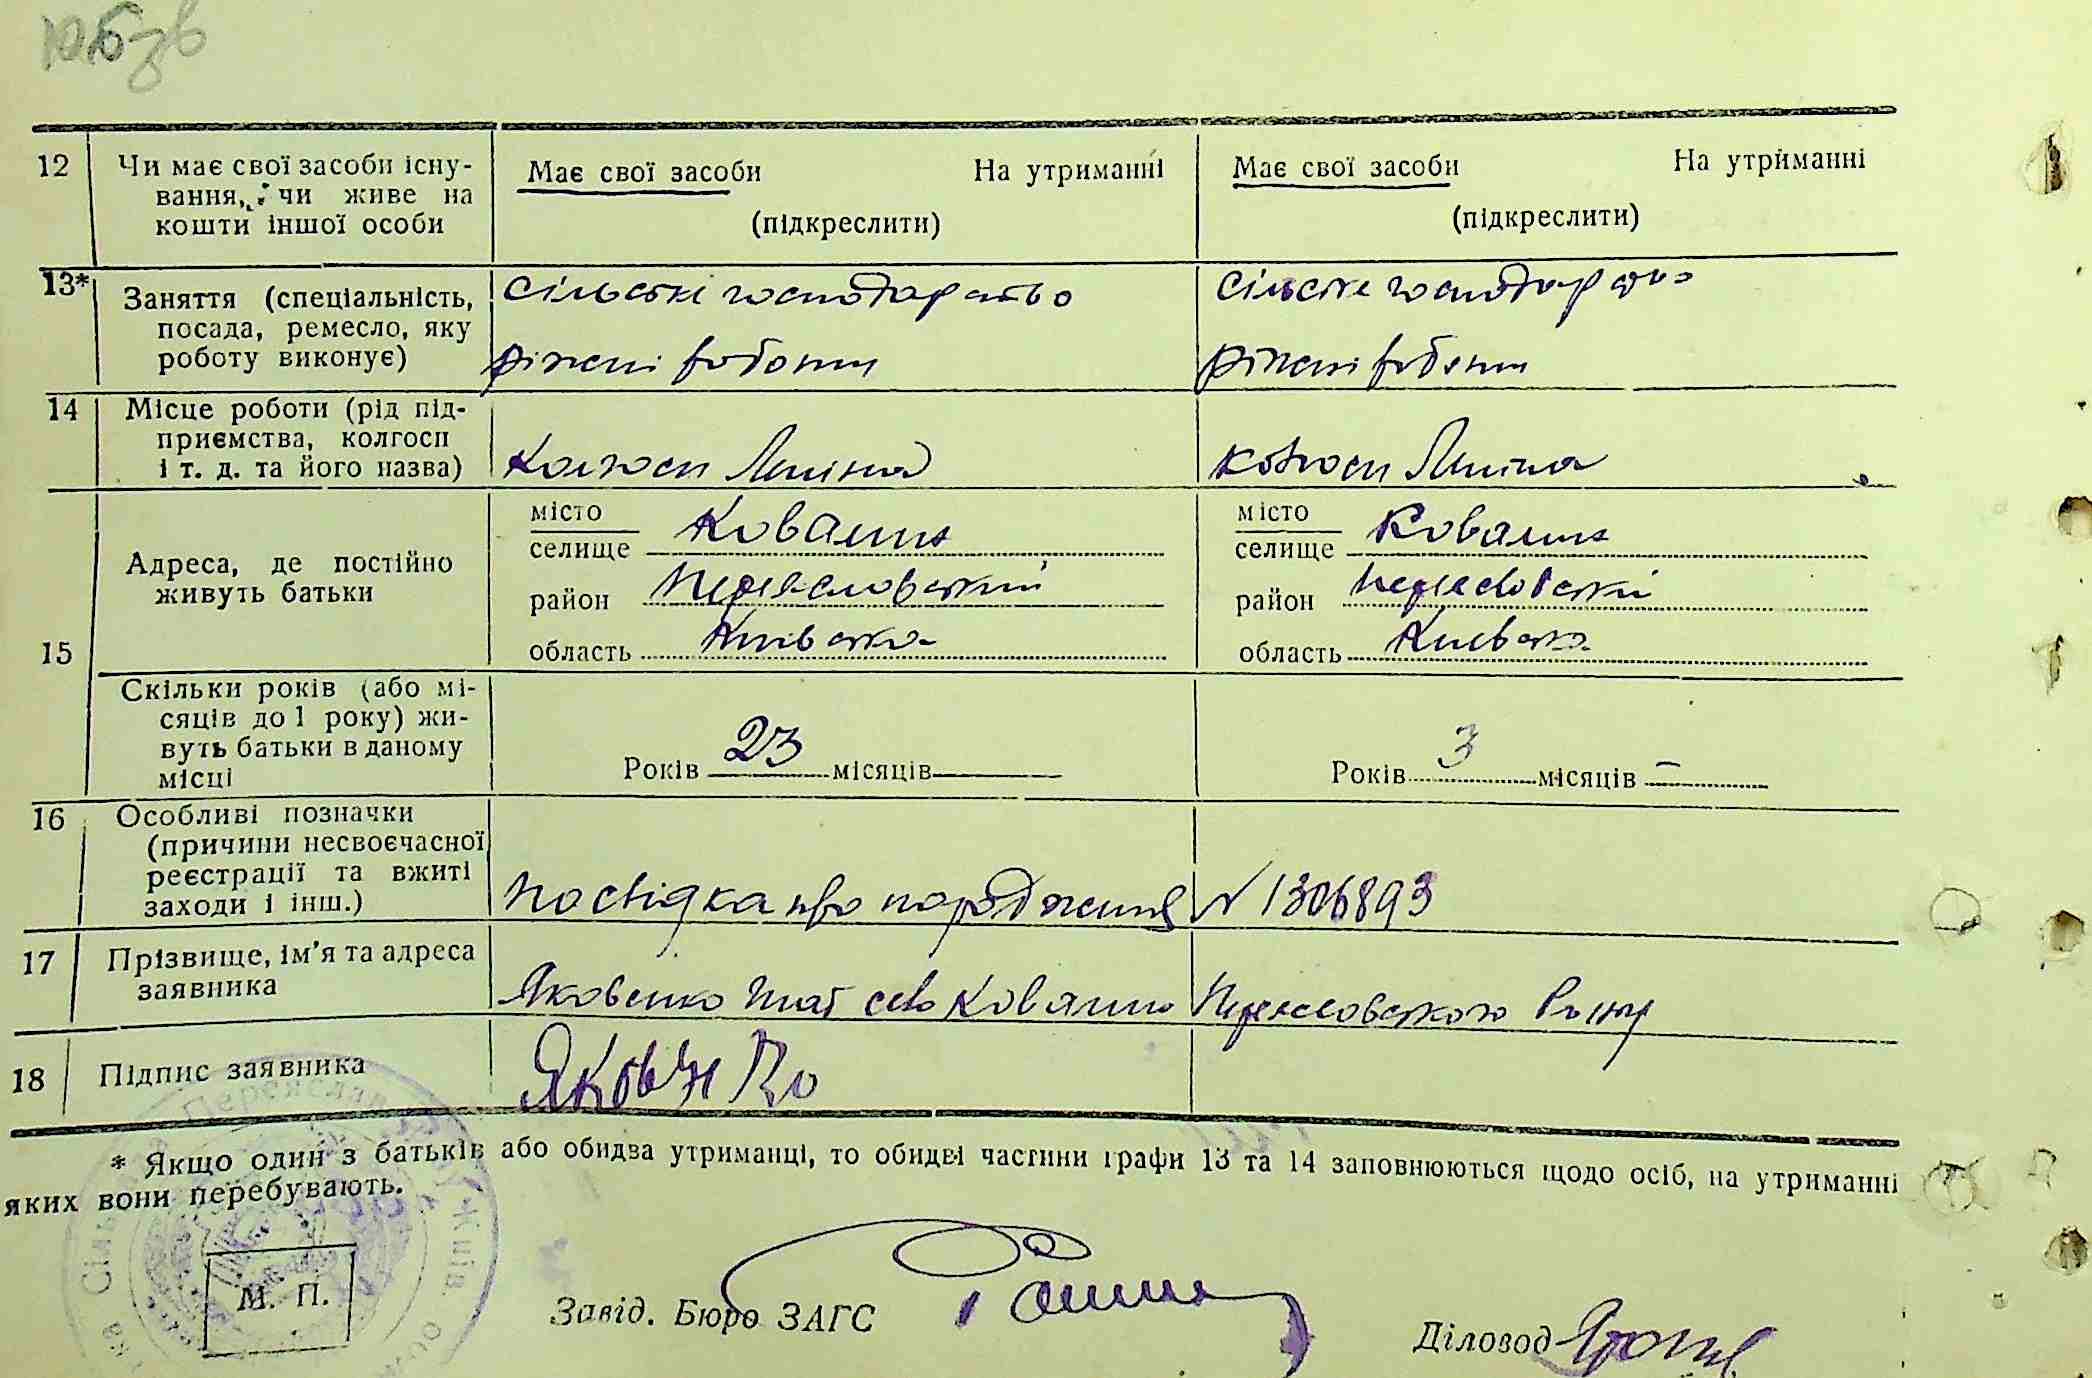 12 Чи має свої засоби існу-
вання, чи живе на
кошти іншої особи
Має свої засоби На утриманні
(підкреслити)
Має свої засоби На утриманні
(підкреслити)
13* Заняття (спеціальність,
посада, ремесло, яку
роботу виконує)
Сільські господарство
ріжні роботи
Сільске господарство
ріжні роботи
14 Місце роботи (рід під-
приємства, колгосп
і т. д. та його назва)
Колгосп Леніна
Колгосп Леніна
15 Адреса, де постійно
живуть батьки
місто
селище Ковалин
район Переяславський
область Київська
місто
селище Ковалин
район Переяславський
область Київська
Скільки років (або мі-
сяців до 1 року) жи-
вуть батьки в даному
місці
Років 23 місяців
Років 3 місяців –
16 Особливі позначки
(причини несвоєчасної
реєстрації та вжиті
заходи і інш.)
Посвідка про народження № 1306893
17 Прізвище, ім'я та адреса
заявника
Яковенко село Ковалин Переясловського Району
18 Підпис заявника
Яковенко
* Якщо один з батьків або обидва утриманці, то обидві частини графи 13 та 14 заповнюються щодо осіб, на утриманні
яких вони перебувають.
М. П.
Завід. Бюро ЗАГС
Діловод